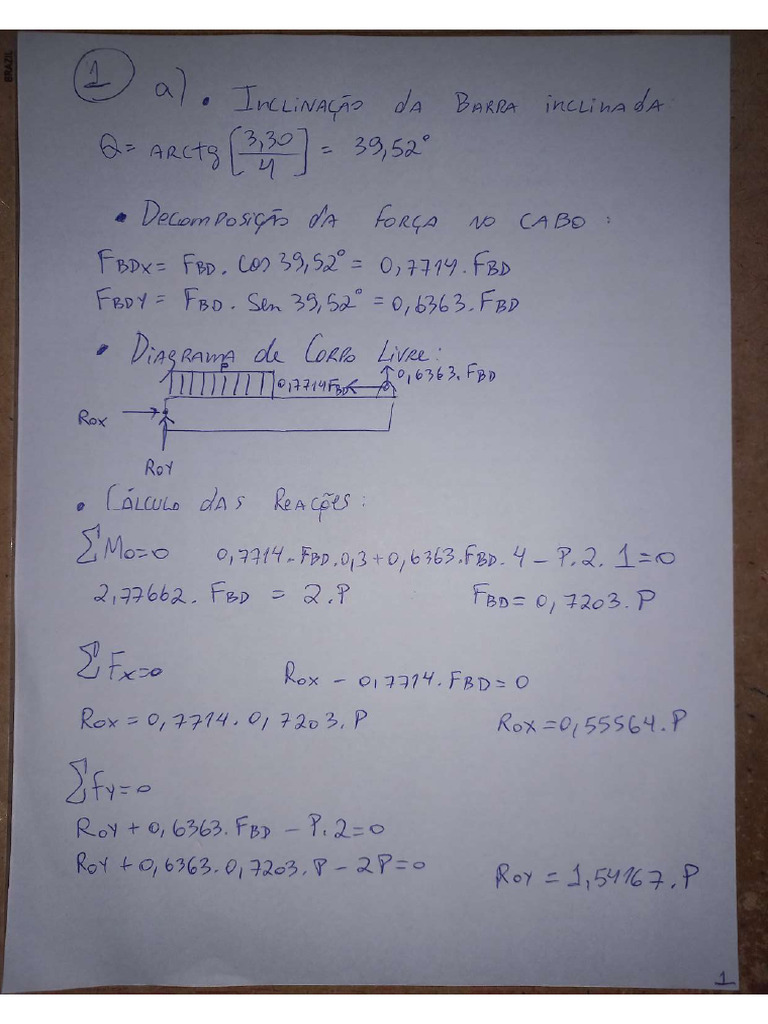 BRAZIL
1 a) • Inclinação da Barra inclinada
θ = arctg [3,30/4] = 39,52°
• Decomposição da força no cabo:
FBDX = FBD. Cos 39,52° = 0,7714. FBD
FBDY = FBD. Sen 39,52° = 0,6363. FBD
• Diagrama de Corpo Livre:
P
0,7714FBD 0,6363. FBD
ROX
ROY
• Cálculo das Reações:
∑Mo=0 0,7714. FBD. 0,3 + 0,6363. FBD. 4 - P. 2. 1 = 0
2,77662. FBD = 2. P FBD = 0,7203. P
∑Fx=0 ROX - 0,7714. FBD = 0
ROX = 0,7714. 0,7203. P ROX = 0,55564. P
∑Fy=0
ROY + 0,6363. FBD - P. 2 = 0
ROY + 0,6363. 0,7203. P - 2P = 0 ROY = 1,54167. P
1